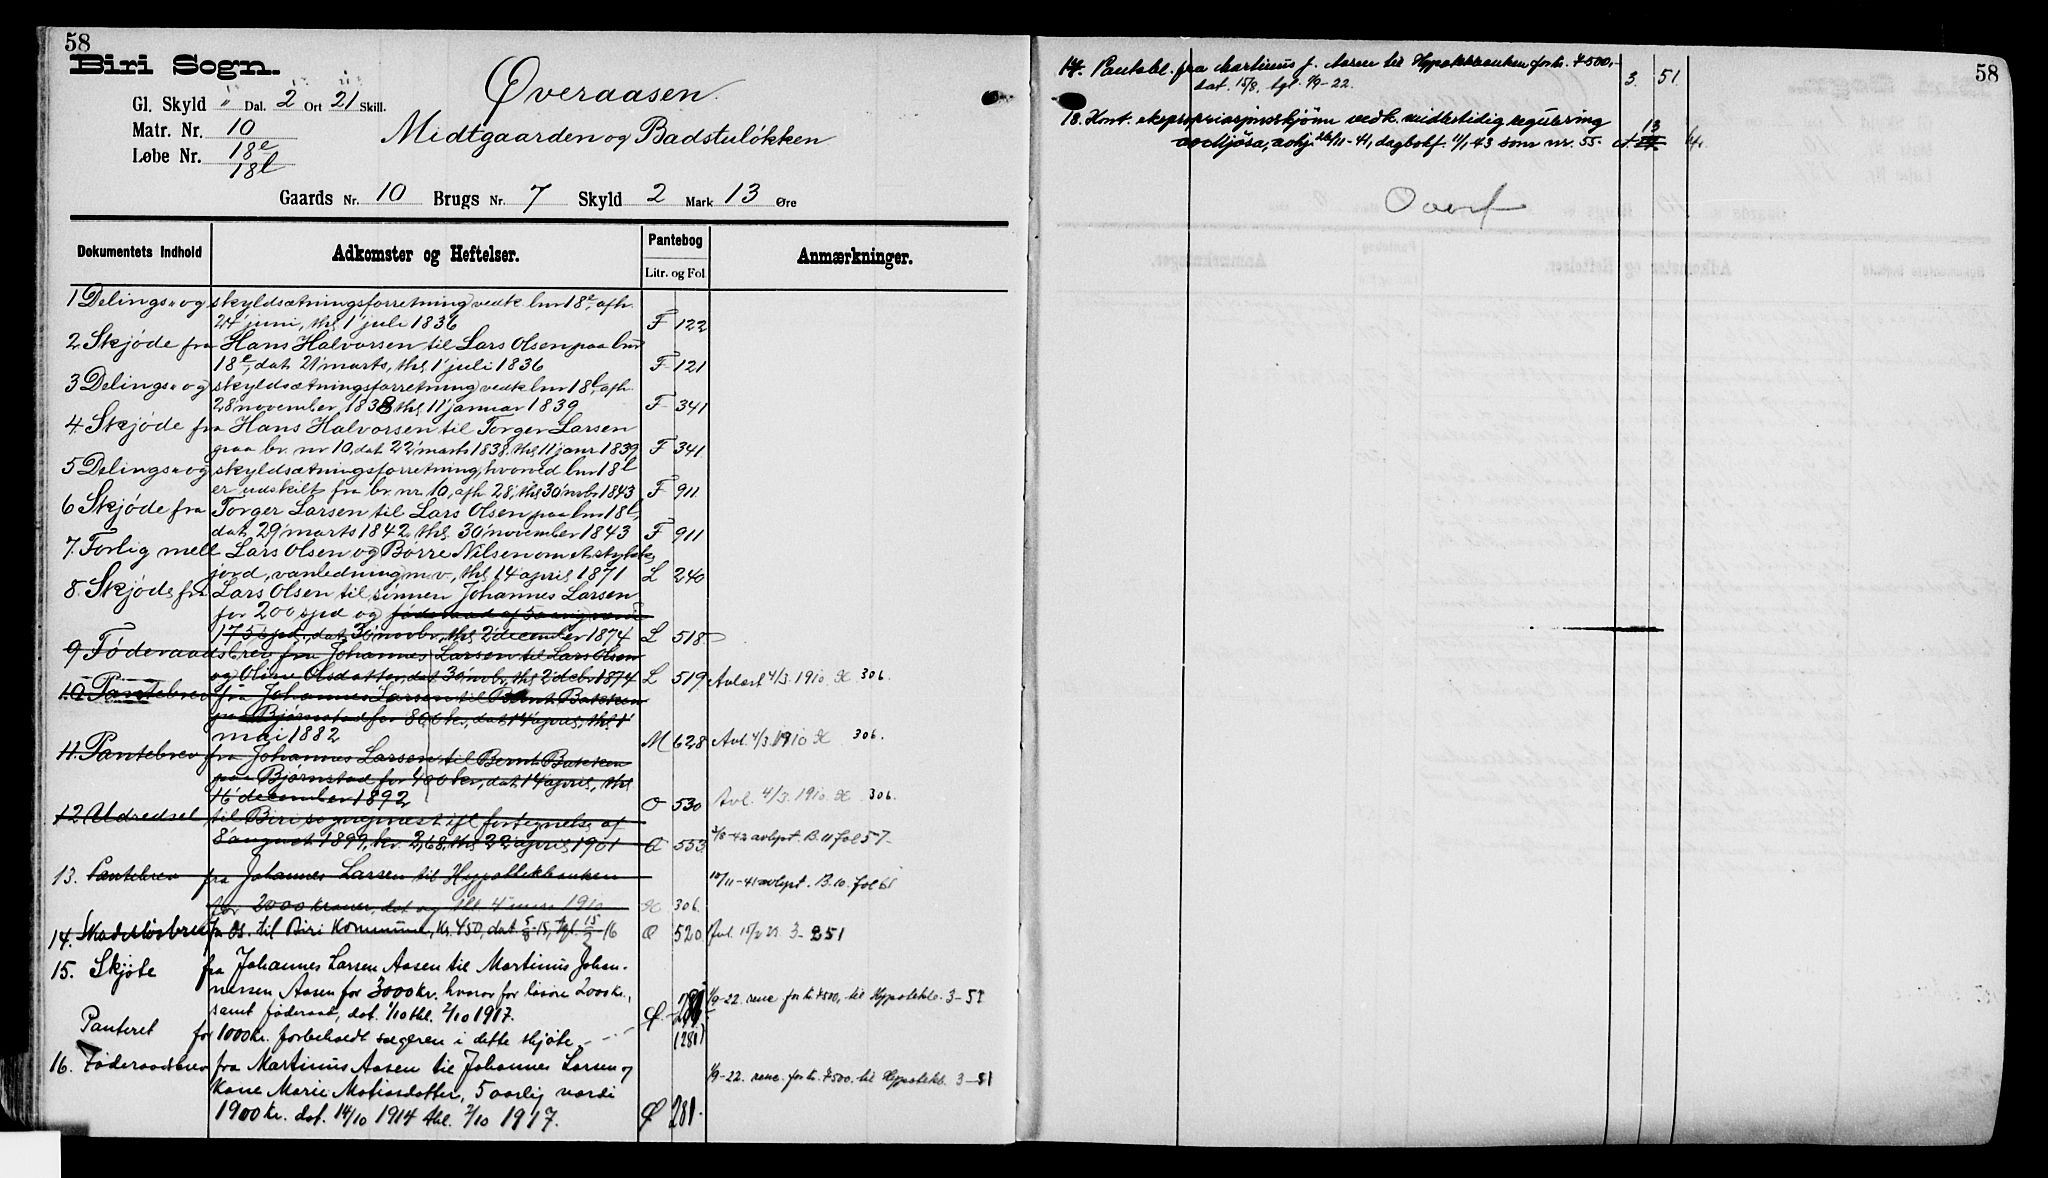 58
Biri Sogn.
Gl. Skyld " Dal. 2 Ort 21 Skill.
Matr. Nr. 10
Løbe Nr. 18e
18l
Øveraasen.
Midtgaarden og Badstuløkken
Gaards Nr. 10 Brugs Nr. 7 Skyld 2 Mark 13 Øre
Dokumentets Indhold Adkomster og Heftelser. Pantebog Litr. og Fol. Anmærkninger.
1 Delings- og skyldsætningsforretning vedk. lnr 18e, afh.
24' juni, thl 1' juli 1836 F 122
2 Skjøde fra Hans Halvorsen til Lars Olsen paa lnr
18e, dat 21' marts, thl 1' juli 1836 F 121
3 Delings- og skyldsætningsforretning vedk lnr 18l, afh.
28' november 1838, thl 11' januar 1839 F 341
4 Skjøde fra Hans Halvorsen til Torger Larsen
paa br. nr 10, dat 22' marts 1838, thl 11' janr 1839 F 341
5 Delings- og skyldsætningsforretning, hvorved lnr 18l
er udskilt fra br. nr. 10, afh 28', thl 30' novbr 1843 F 911
6 Skjøde fra Torger Larsen til Lars Olsen paa lnr 18l,
dat. 29' marts 1842, thl. 30' november 1843 F 911
7. Forlig mell Lars Olsen og Børre Nilsen om et stykke
jord, vanledning m. v, thl 14' april 1871 L 240
8. Skjøde fra Lars Olsen til sønnen Johannes Larsen
for 200 spd og føderaad af 5 aarig værdi
175 spd., dat 30' novbr, thl 2' december 1874 L 518
9 Føderaadsbrev fra Johannes Larsen til Lars Olsen
og Oline Olsdatter, dat 30' novbr, thl 2' debr 1874 L 519 Avlæst 4/3. 1910. X 306.
10 Pantebrev fra Johannes Larsen til Bernt Bakken
pr Bjørnstad for 800 kr, dat 14' april, thl 1'
mai 1882 M 628 Avl. 4/3. 1910 X 306.
11. Pantebrev fra Johannes Larsen til Bernt Bakken
paa Bjørnstad for 400 kr, dat 14' april, thl
16' december 1892 O 530 Avl. 4/3. 1910. X 306.
12 Udredsel til Biri sogneprest ifl fortegnelse af
8' august 1899, kr. 2,68, thl 22' april 1901 Q 553 3/8-42 avlyst. B. 11 fol 57-
13. Pantebrev fra Johannes Larsen til Hypothekbanken
for 2000 kroner, dat og thl 4' mars 1910 X 306. 12/11-41 avlyst. B. 10. fol 61
14. Skadesløsbrev fra ds. til Biri kommune, kr. 450, dat 5/8-15, tgl. 15/2 16 Q 520 Avl. 15/2 23. 3-251
15. Skjøte fra Johannes Larsen Aasen til Martinus Johan-
nessen Aasen for 3000 kr. hvorav for løsøre 200 kr.,
samt føderaat, dat. 1/10 thl. 2/10 1917. Q 281 1/9-22. vike for kr. 4500,- til Hypotekb. 3-51
Panteret for 1000 kr. forbeholdt sælgeren i dette skjøte. (281)
16. Føderaadsbrev fra Martinus Aasen til Johannes Larsen og
Kone Marie Matiasdatter, 5 aarlig værdi
1900 kr. dat. 14/10 1914 thl. 2/10 1917. Q 281. 1/9-22. vike for kr. 4500. til Hypotekb. 3-51
58
17. Pantobl. fra Martinus J. Aasen til Hypotekbanken for kr. 4500,-
dat. 15/8, tgl. 1/9-22. 3. 51.
18. Kont. ekspropriasjonsskjønn vedk. midlertidig regulering
av Mjøsa, avhj. 26/11-41, dagbokf. 4/1-43 som nr. 55. A. 13
Overf